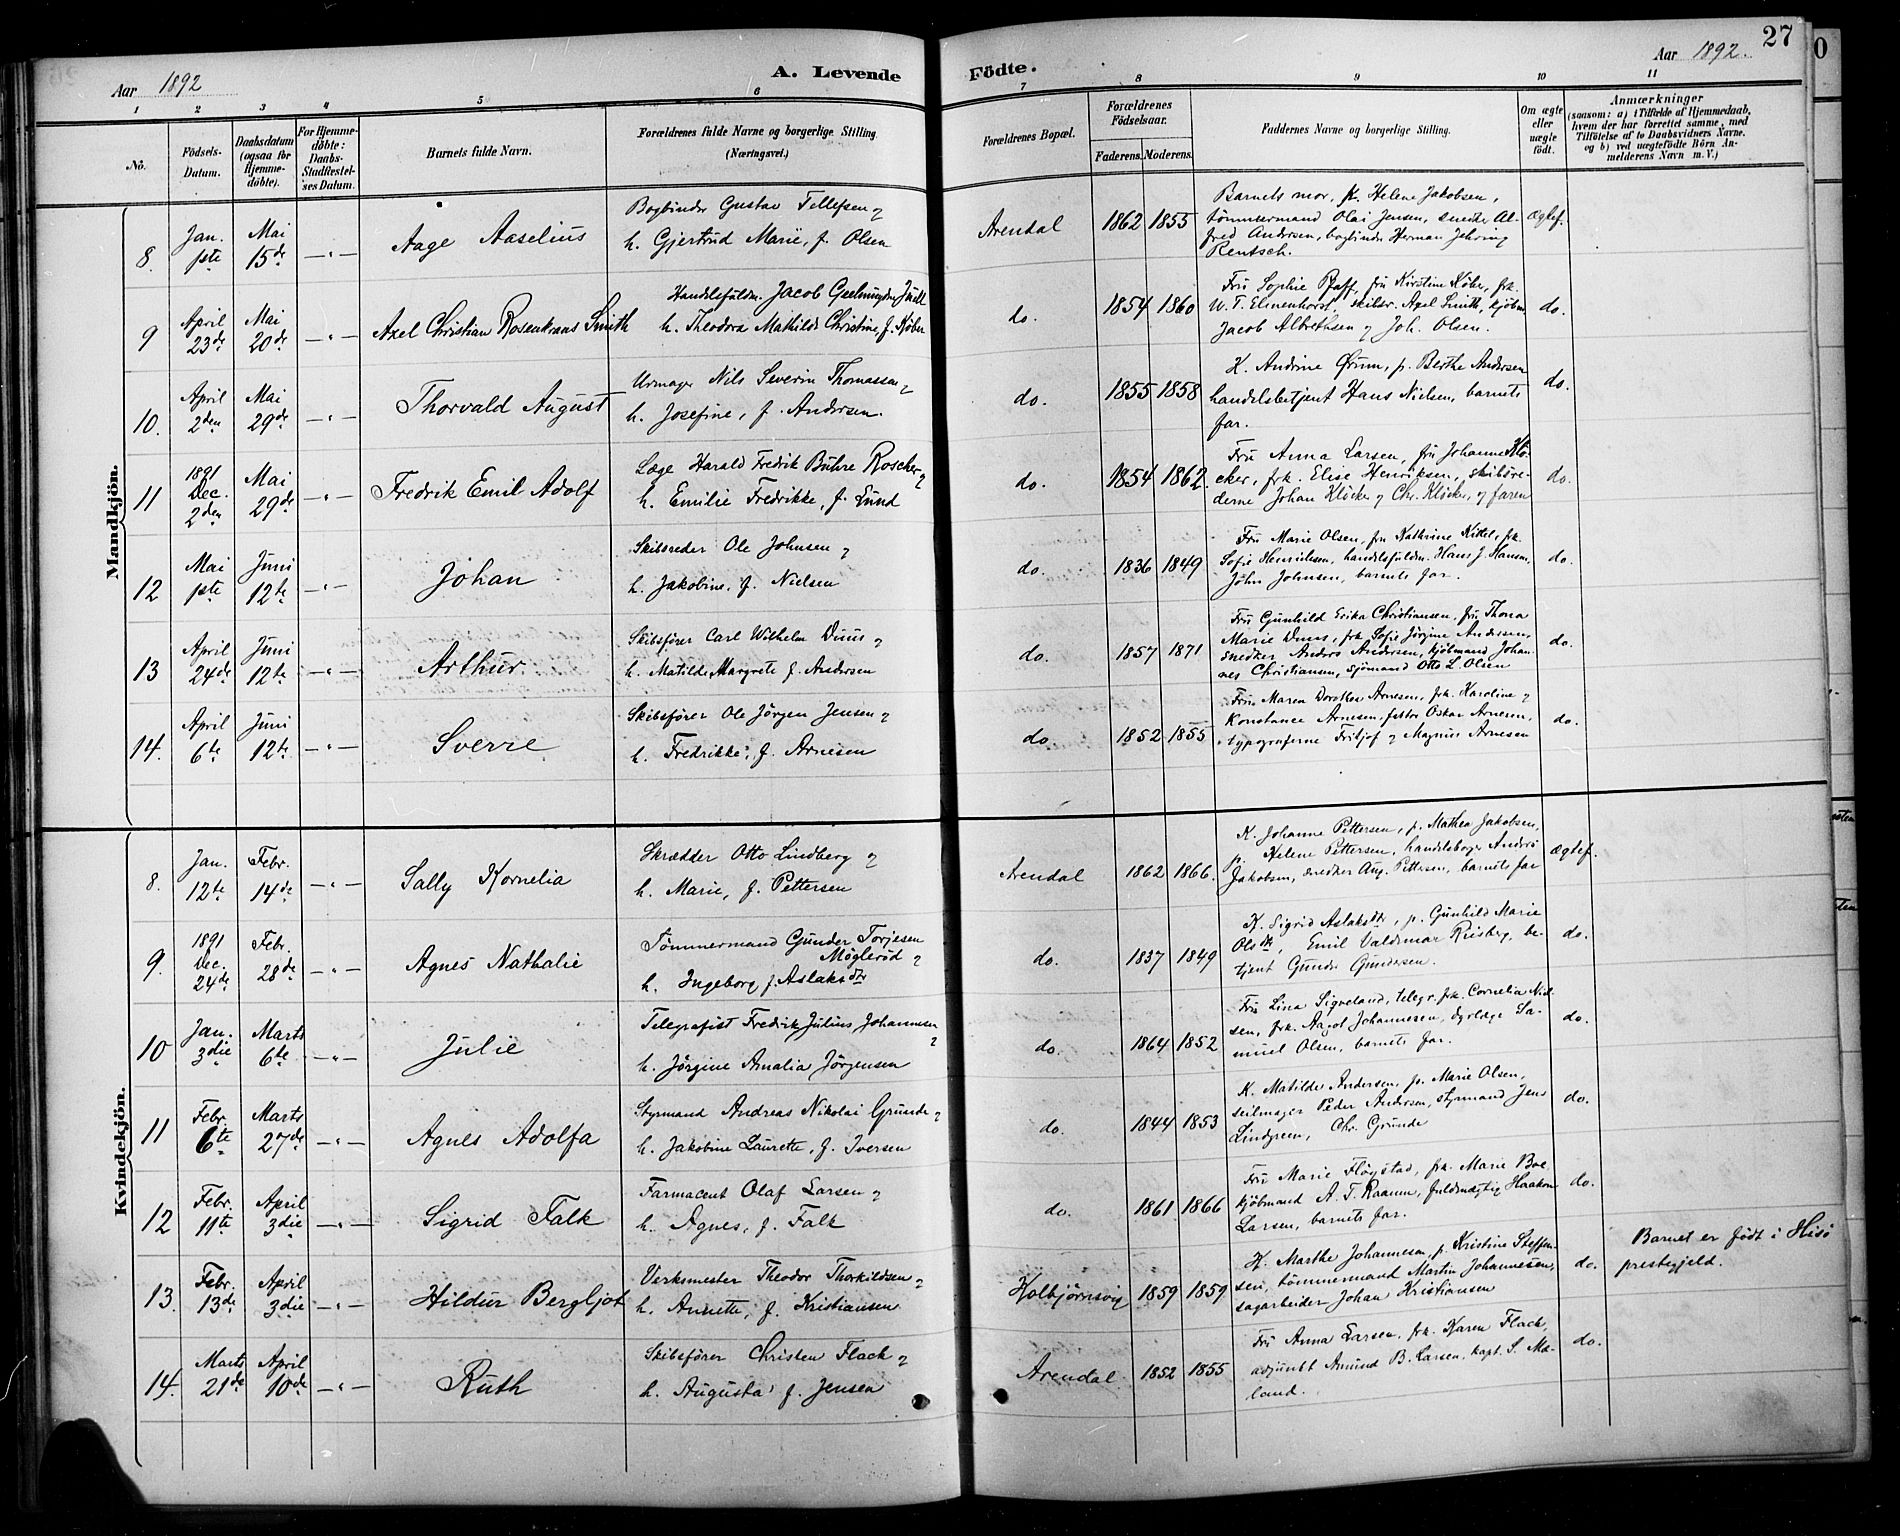 27
Aar 1892
A. Levende Födte.
Aar 1892.
1 2 3 4 5 6 7 8 9 10 11
No.
Födsels-Datum.
Daabsdatum (ogsaa for Hjemme-döbte).
For Hjemme-döbte: Daabs-Stadfæstel-ses Datum.
Barnets fulde Navn.
Forældrenes fulde Navne og borgerlige Stilling. (Næringsvei.)
Forældrenes Bopæl.
Forældrenes Födselsaar.
Faderens. Moderens.
Faddernes Navne og borgerlige Stilling.
Om ægte eller uægte födt.
Anmærkninger
(saasom: a) i Tilfælde af Hjemmedaab,
hvem der har forrettet samme, med
Tilföielse af to Daabsvidners Navne.
og b) ved uægtefödte Börn An-
melderens Navn m. V.)
Mandkjön.
8. Jan. 1ste Mai 15de —„— Aage Aaselius
Bogbinder Gustav Tellefsen og
h. Gjertrud Marie, f. Olsen
Arendal 1862 1855
Barnets mor, fr. Helene Jakobsen,
tömmermand Olai Jensen, snedker Al-
fred Andersen, bogbinder Herman Jehring
Rentsch.
ægtef.
9 April 23de Mai 20de —„— Axel Christian Rosenkrans Smith
Handelsfuldm. Jacob Geelmuyden Juell
h. Theodora Mathilde Christine, f. Köber
do. 1854 1860
Fru Sophie Pfaff, fru Kirstine Köber, frk.
W. T. Elmenhorst, skibsr. Axel Smith, kjöbm
Jacob Albrethsen og Joh. Olsen.
do.
10. April 2den Mai 29de —„— Thorvald August
Urmager Nils Severin Thomassen og
h. Josefine, f. Andersen.
do. 1855 1858
K. Andrine Ørum, p. Berthe Andersen
handelsbetjent Hans Nielsen, barnets
far.
do.
11 1891 Dec. 2den Mai 29de —„— Fredrik Emil Adolf
Læge Harald Fredrik Buhre Roscher og
h. Emilie Fredrikke, f. Lund
do. 1854 1862.
Fru Anna Larsen, fru Johanne Klö-
cker, frk. Elise Henriksen, skibsre-
derne Johan Klöcker og Chr. Klöcker, og faren
do.
12 Mai 1ste Juni 12te —„— Johan
Skibsreder Ole Johnsen og
h. Jakobine, f. Nielsen
do. 1836 1849
Fru Marie Olsen, fru Kathrine Kittel, frk.
Sofie Henriksen, handelsfuldm. Hans J. Hansen,
John Johnsen, barnets far.
do.
13 April 24de Juni 12te —„— Arthur.
Skibsförer Carl Wilhelm Duus og
h. Matilde Margrete f. Andersen
do. 1857 1871
Fru Gunhild Erika Christiansen, fru Thora
Marie Duus, frk. Sofie Jörgine Andersen,
snedker Anders Andersen, kjöbmand Johan-
nes Christiansen, sjömand Otto L. Olsen
do.
14. April 6te Juni 12te —„— Sverre
Skibsförer Ole Jörgen Jensen og
h. Fredrikke, f. Arnesen
do. 1852 1855
Fru Maren Dorothea Arnesen, frk. Karoline og
Konstance Arnesen, Oskar Arnesen,
typograferne Fritjof og Magnus Arnesen
do.
Kvindekjön.
8. Jan. 12te Febr. 14de —„— Sally Kornelia
Skrædder Otto Lindberg og
h. Marie, f. Pettersen
Arendal 1862 1866.
K. Johanne Pettersen, p. Mathea Jakobsen,
p. Helene Pettersen, handelsborger Anders
Jakobsen, snedker Aug. Pettersen, barnets far
ægtef.
9. 1891 Dec. 24de Febr. 28de —„— Agnes Nathalie
Tömmermand Gunder Torjesen
Möglerød og
h. Ingeborg f. Aslaksdtr
do. 1837 1849
K. Sigrid Aslaksdtr, p. Gunhild Marie
Olsdtr, Emil Valdemar Risberg, be-
tjent Gunder Gundersen.
do.
10 Jan. 3die Marts 6te —„— Julie
Telegrafist Fredrik Julius Johannesen og
h. Jörgine Amalia Jörgensen
do. 1864 1852
Fru Lina Sigveland, telegr. frk. Cornelia Niel-
sen, frk. Aagot Johannesen, dyrlæge Sa-
muel Olsen, barnets far.
do.
11 Febr. 6te Marts 27de —„— Agnes Adolfa
Styrmand Andreas Nikolai Grunde og
h. Jakobine Laurette, f. Iversen
do. 1844 1853
K. Matilde Andersen, p. Marie Olsen,
seilmager Peder Andersen, styrmand Jens
Lindgreen, Chr. Grunde
do.
12 Febr. 11te April 3die —„— Sigrid Falk
Farmaceut Olaf Larsen og
h. Agnes, f. Falk
do. 1861 1866
Fru Marie Fløystad, frk. Marie Boe
kjöbmand A. T. Raanum, fuldmægtig Haakon
Larsen, barnets far.
do.
13. Febr. 13de April 3die —„— Hildur Bergljot
Verksmester Theodor Thorkildsen og
h. Annette, f. Kristiansen
Kolbjörnsvig 1859 1859
K. Marthe Johannesen, p. Kristine Steffen-
sen, tömmermand Martin Johannesen,
sagarbeider Johan Kristiansen
do.
Barnet er födt i Hisö
prestegjeld.
14. Marts 21de April 10de —„— Ruth
Skibsförer Christen Flack og
h. Augusta f. Jensen
Arendal 1852 1855
Fru Anna Larsen, frk. Karen Flack,
adjunkt Amund B. Larsen, kapt. S. Mø-
land.
do.